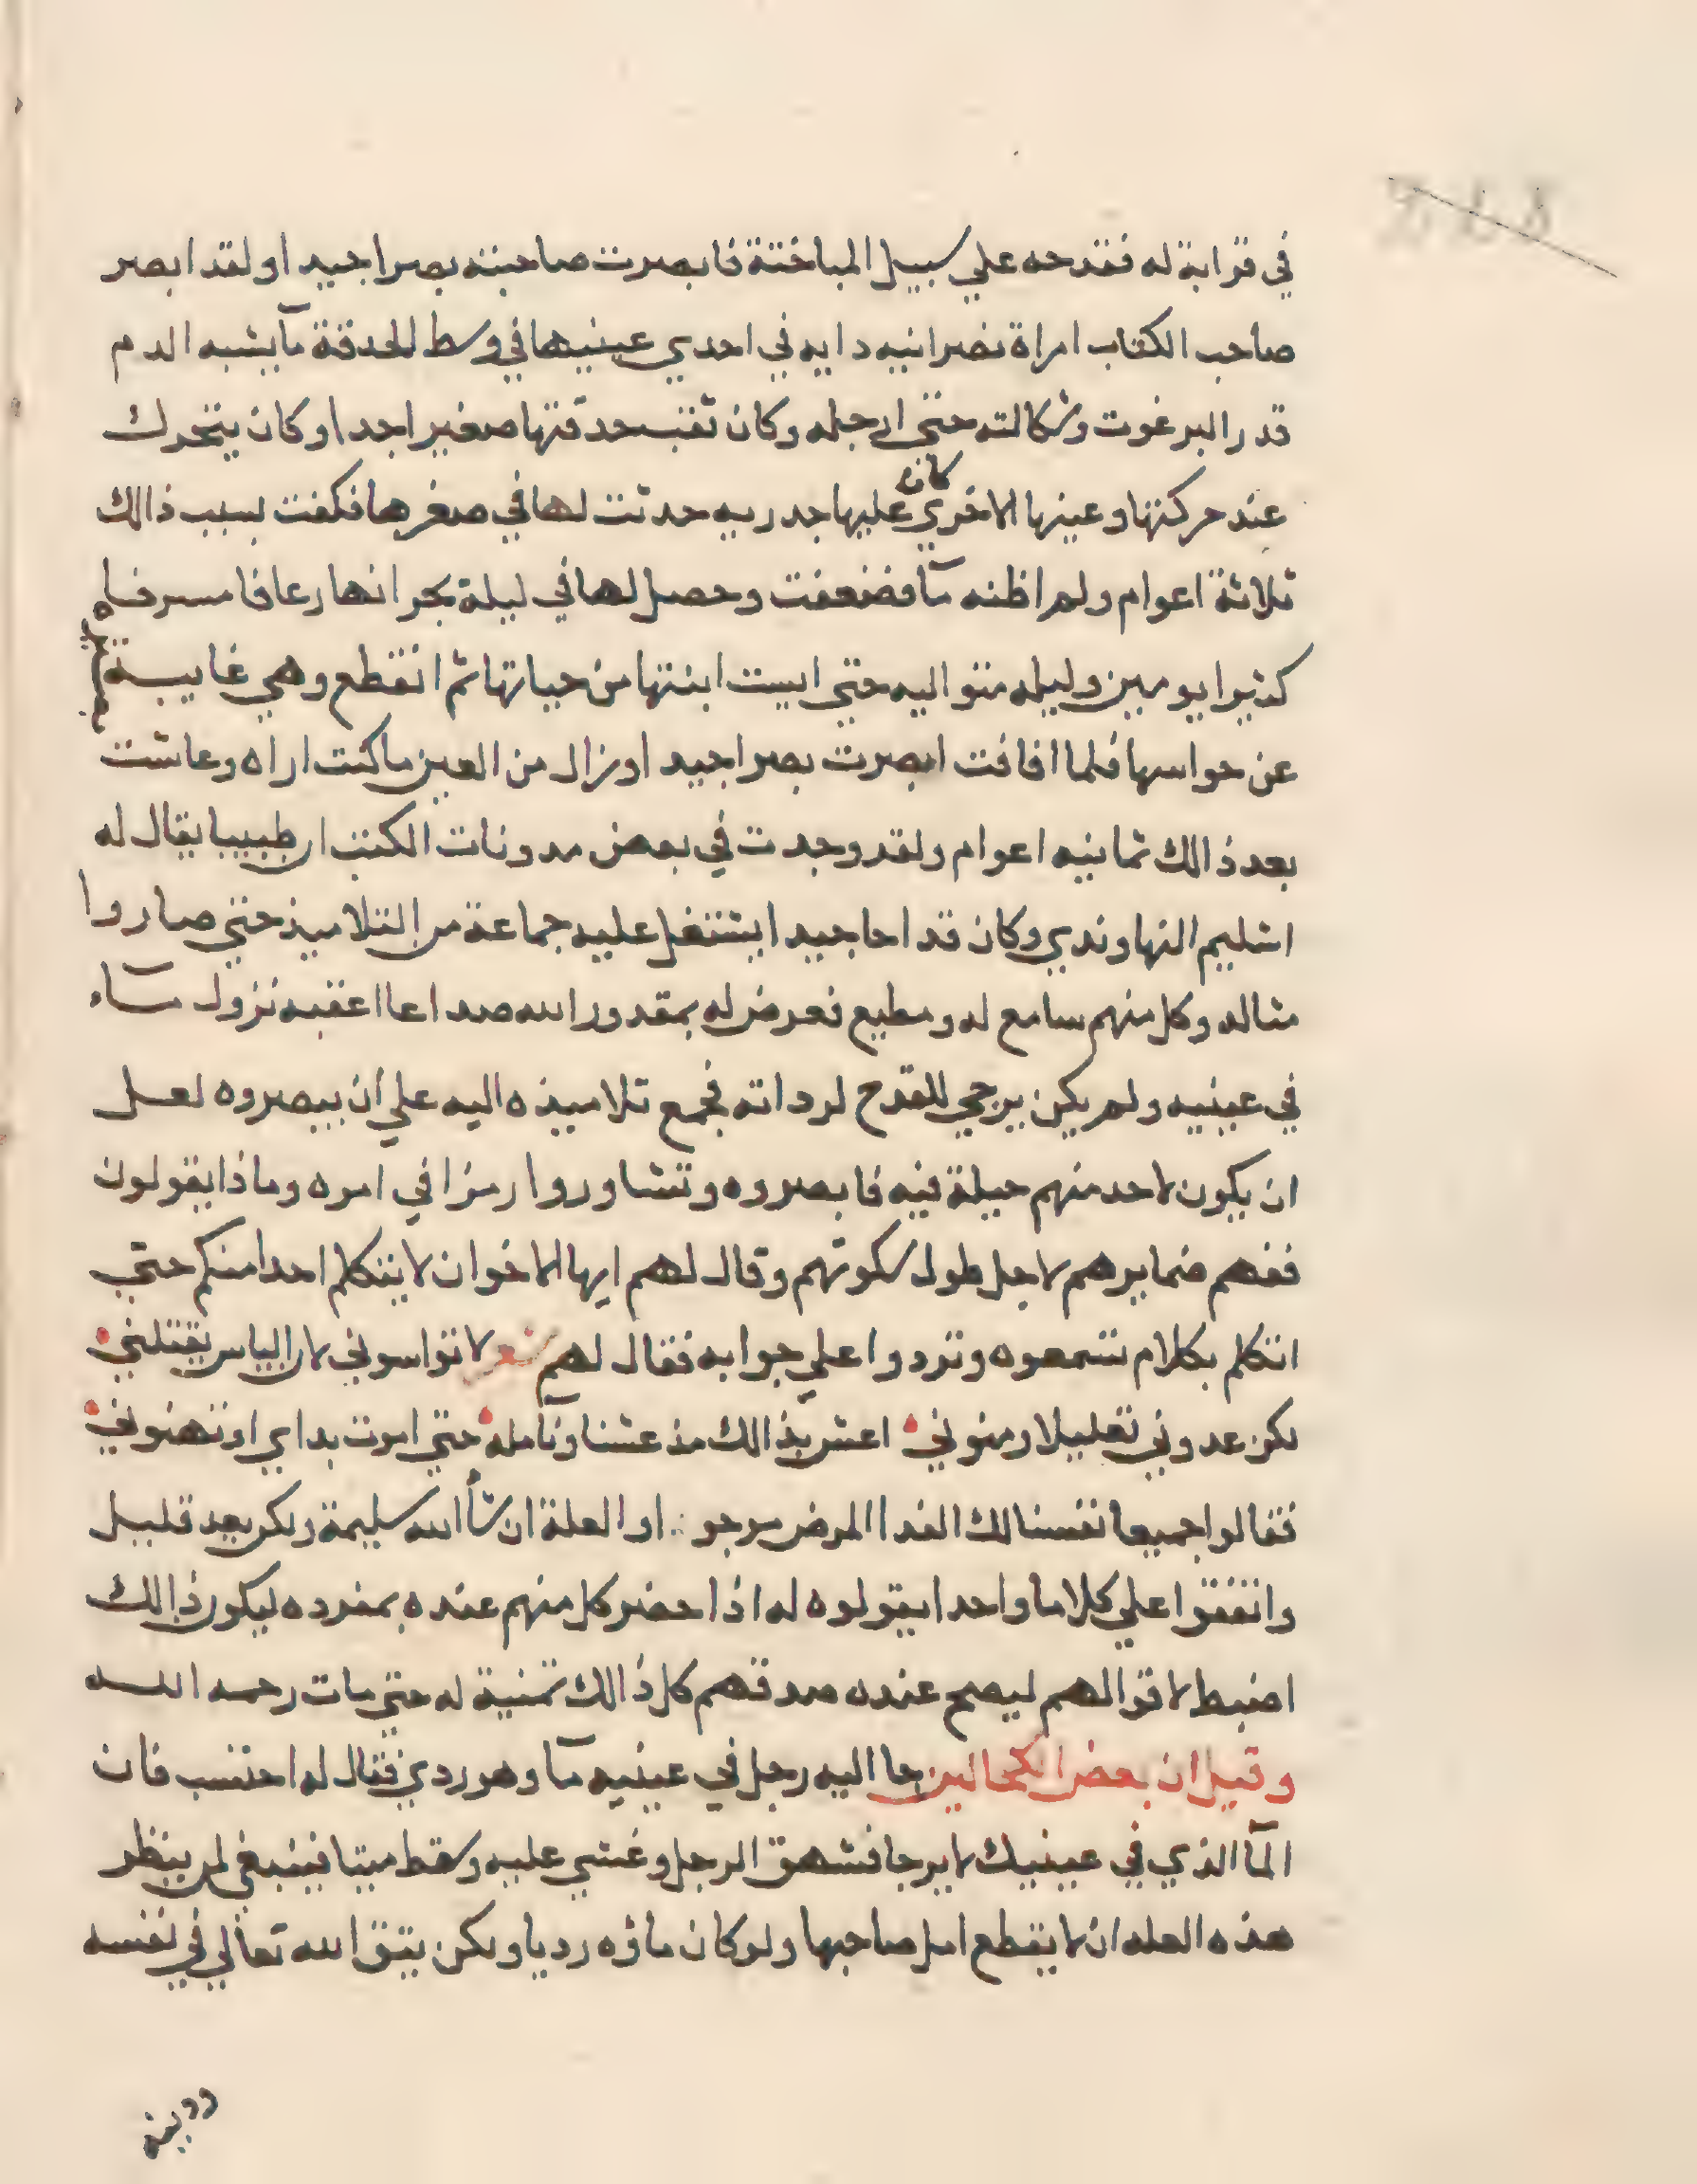 في قرابة له فقدحه علي سبيل المباختة فابصرت صاحبته بصرا جيدا ولقد ابصر
صاحب الكتاب امراة نصرانيه دايه في احدي عينيها في وسط الحدقة مآ يشبه الدم
قدر البرغوت وشكالته حتي ارجله وكان ثقب حدقتها صغيرا جدا وكان يتحرك
عند حركتها وعينها الاخري كان عليها جدريه حدثت لها في صغرها فكفت لسبب ذالك
ثلاثة اعوام ولم اظنه مآ فضعفت وحصل لها في ليلة بحرانها رعافا مسرفاه
كثيرا يومين وليله متواليه حتي ايست ابنتها من حياتها ثم انقطع وهي غايبة
عن حواسها فلما افاقت ابصرت بصرا جيدا وزال من العين ما كنت اراه وعاشت
بعد ذالك ثمانيه اعوام ولقد وجدت في بعض مدونات الكتب ان طبيبا يقال له
اشليم النهاوندي وكان قداحا جيدا يشتغل عليه جماعة من التلاميذ حتي صاروا
مثاله وكل منهم سامع له ومطيع فعرض له بمقدور الله صداعا اعقبه نزول مآء
في عينيه ولم يكن يرجي للقدح لرداته فجمع تلاميذه اليه علي أن يبصروه لعل
ان يكون لاحد منهم حيلة فيه فابصروه وتشاوروا رمزا في امره وماذا يقولون
ففهم ضمايرهم لاجل طول سكوتهم وقال لهم ايها الاخوان لا يتكلم احدا منكم حتي
اتكلم بكلام تسمعوه وتردوا علي جوابه فقال لهم شعر لا تواسوني لان الياس يقتلني
لكن عدوني تعليلا ومنوني اعش بذالك مذ عشنا ونامله حتي اموت بداي او تهنوني
فقالوا جميعا نفسنا لك الفدا المرض مرجو ∴ او العلة ان شأ الله سليمة ولكن بعد قليل
واتفقوا علي كلاما واحدا يقولوه له اذا حضر كل منهم عنده بمفرده ليكون ذالك
اضبط لاقوالهم ليصح عنده صدقهم كل ذالك تمنية له حتي مات رحمه الله
وقيل ان بعض الكحالين جا اليه رجل في عينيه مآ وهو ردي فقال له احتسب فان
المآ الذي في عينيك لا يرجا فشهق الرجل وغشي عليه وسقط ميتا فينبغي لمن ينظر
هذه العله ان لا يقطع امل صاحبها ولو كان ماؤه رديا ولكن يتق الله تعالي في نفسه